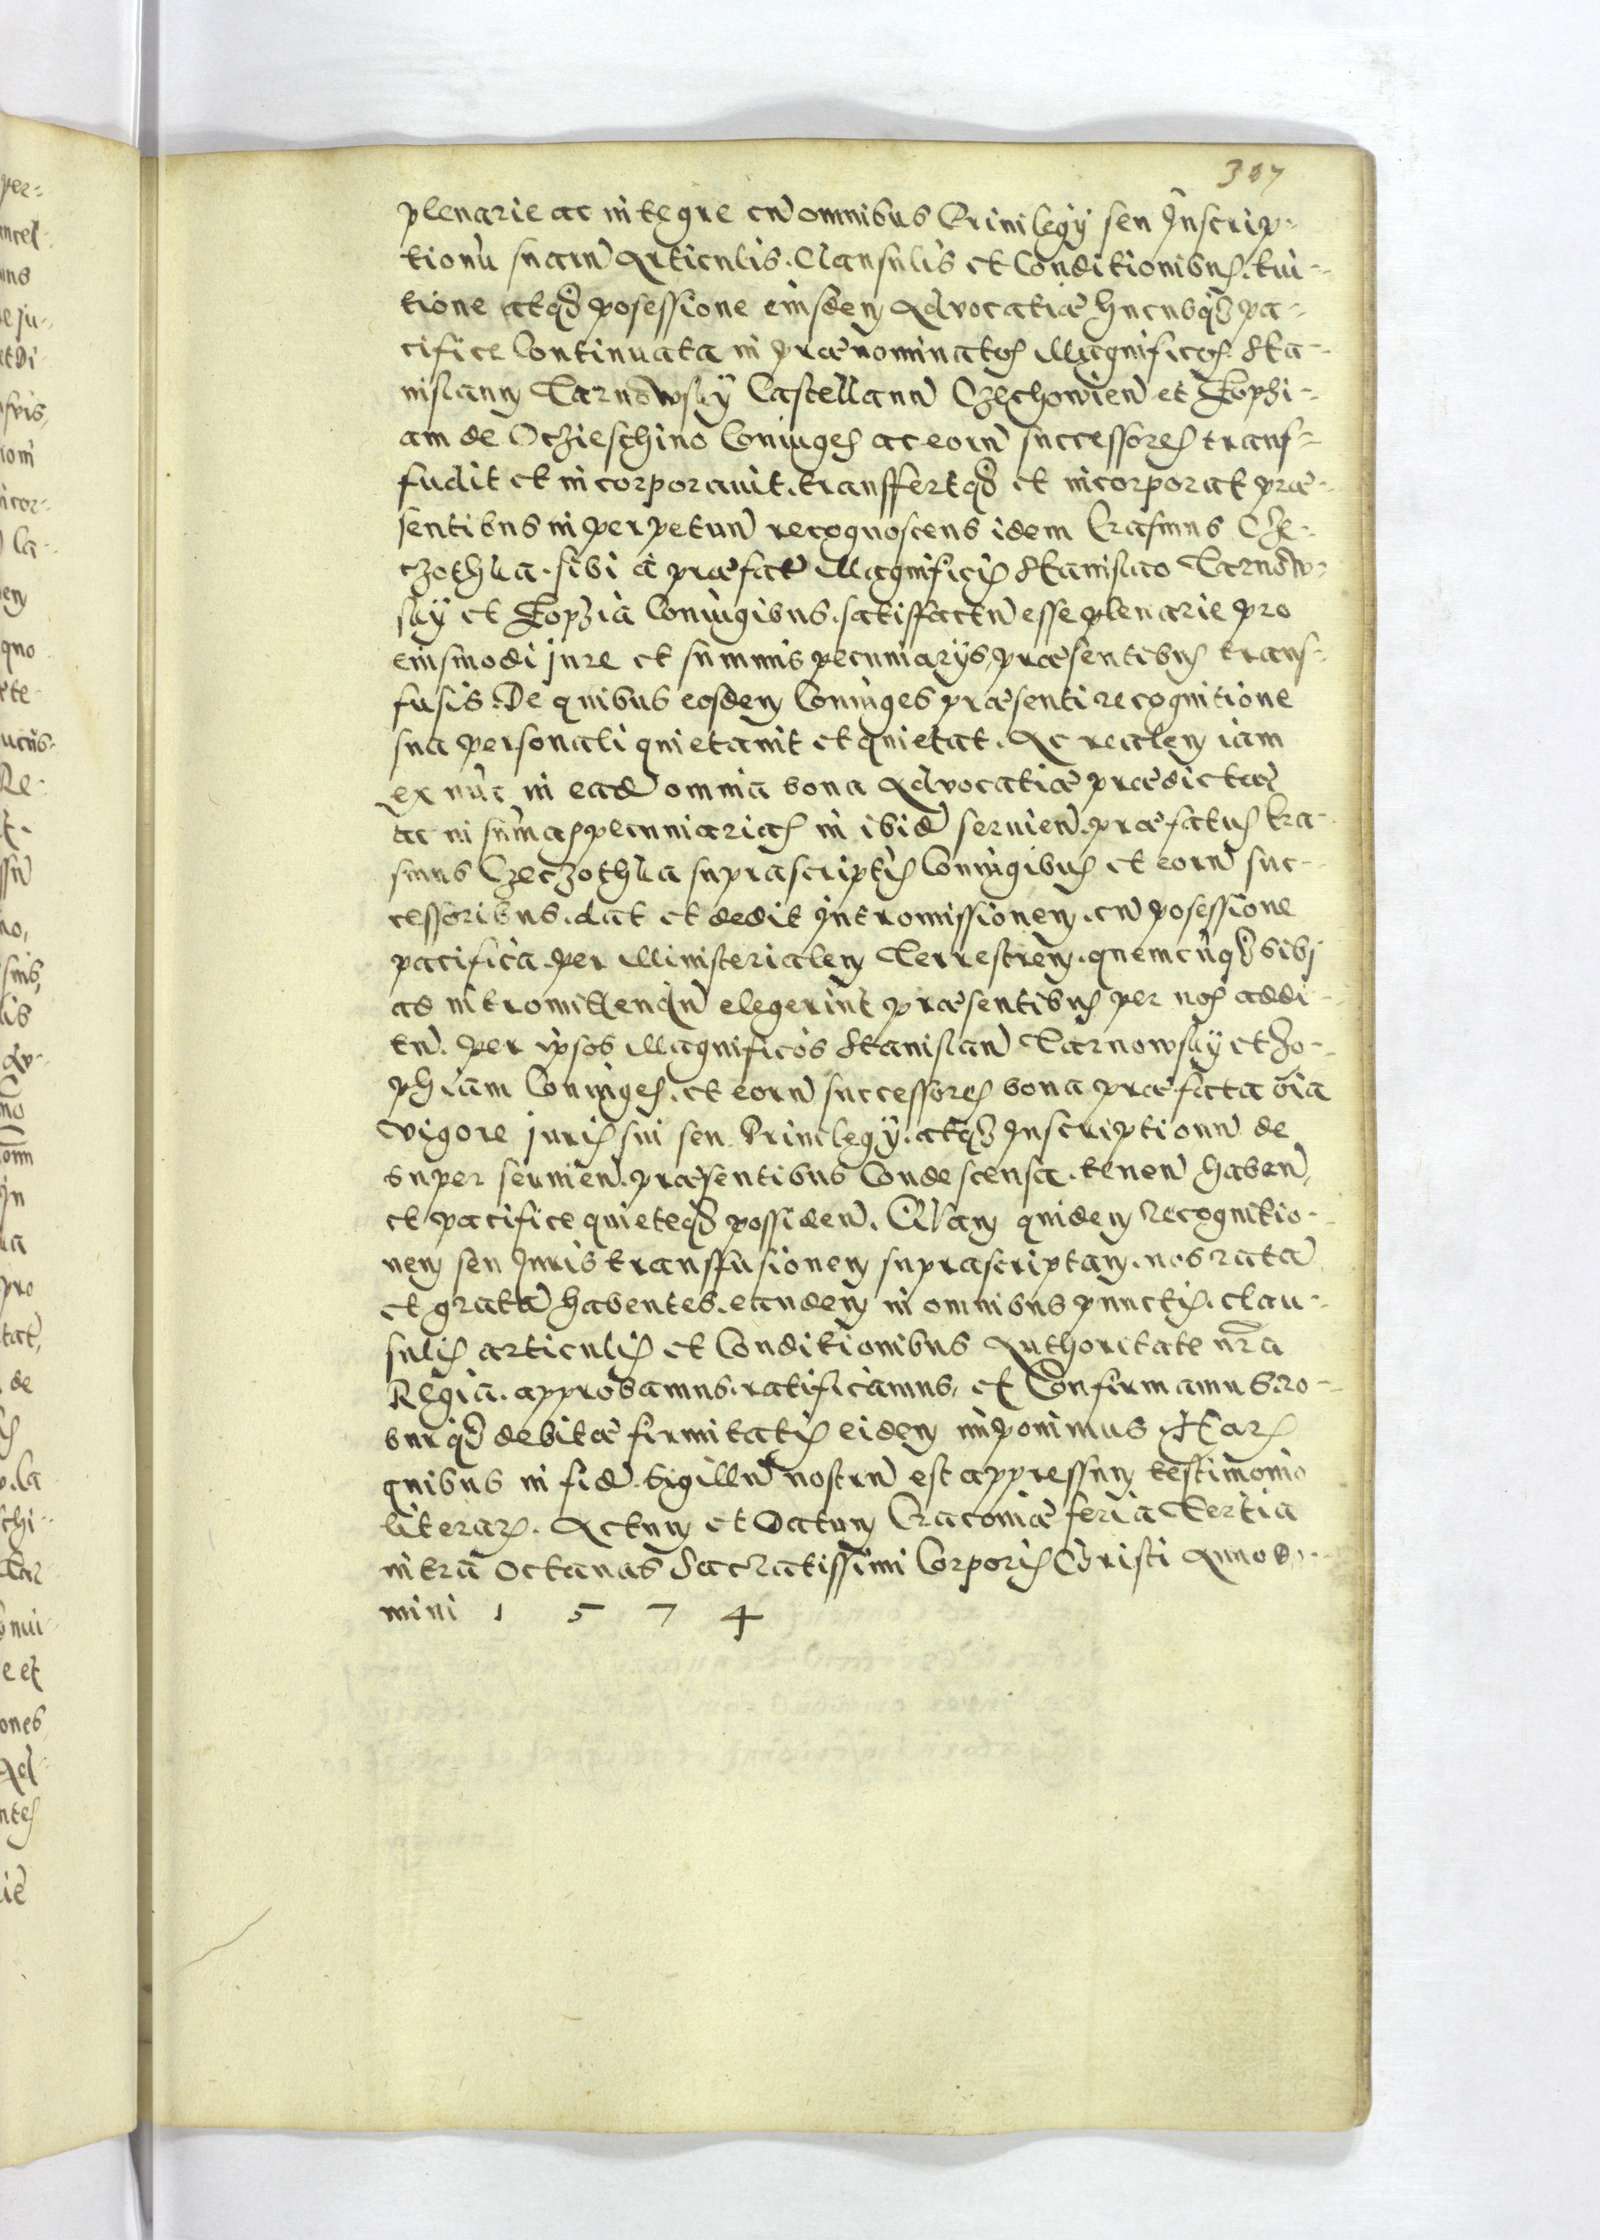 307
plenarie ac integre cũ omnibus Privilegÿ seu Inscrip-
tionũ suarũ Articulis. Clausulis et Conditionibus. tui-
tione atq̃ posessione eiusdem Advocatiæ hucusq̃ pa-
cifice Continuata in prænominatos Magnificos Sta-
nislaum Tarnowsky Castellanũ Czechowien̄ et Zophi-
am de Oczieschino Coniuges ac eorũ successores transf-
fudit et incorporavit. transffertq̃ et incorporat præ-
sentibus in perpetuũ recognoscens idem Erasmus Cze-
czothka. sibi à præfat̃ Magnificis Stanislao Tarnow-
sky et Zophia Coniugibus. satisffactũ esse plenarie pro
eiusmodi jure et summis pecuniarÿs, præsentibus trans-
fusis. De quibus eosdem Coniuges præsenti recognitione
sua personali quietavit et quietat. Ac realem iam
ex nũc in ead̃ omnia bona Advocatiæ prædictæ
ac in sum̃as pecuniarias in ibid̃ servien̄. præfatus Era-
smus Czeczothka suprascriptis Coniugibus et eorũ suc-
cessoribus. dat et dedit Intromissionem. cũ posessione
pacifica. per Ministerialem Terrestrem. quemcũq̃ sibj
ad intromittendũ elegerint præsentibus per nos addi-
tũ. Per ipsos Magnificos Stanislaũ Tarnowsky et Zo-
phiam Coniuges. et eorũ successores bona præfata oĩa
vigore juris sui seu Privilegÿ. atq̃ Inscriptionũ de
super servien̄. præsentibus Condescensa. tenen̄ haben̄,
et pacifice quieteq̃ possiden̄. Quam quidem Recognitio-
nem seu Juris transffusionem suprascriptam. nos ratã
et gratã habentes. eandem in omnibus punctis. clau-
sulis articulis et Conditionibus Authoritate nr̃a
Regia. approbamus. ratificamus, et Confirmamus. ro-
burq̃ debitæ firmitatis eidem imponimus. Harũ
quibus in fid̃. Sigillũ nostrũ est appressum testimonio
literarũ. Actum et Datum Cracoviæ feria Tertia
intra Octavas Sacratissimi Corporis Christi Anno Do-
mini 1 5 7 4